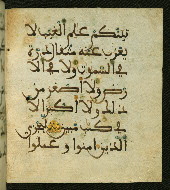 تينكم علم الغيب لا
يعزب عنه مثقال ذرة
في السموت ولا في الا
رض ولا اصغر من
ذلك ولا اكبر الا
في كتب مبين ليجزي
الذين امنوا وعملوا